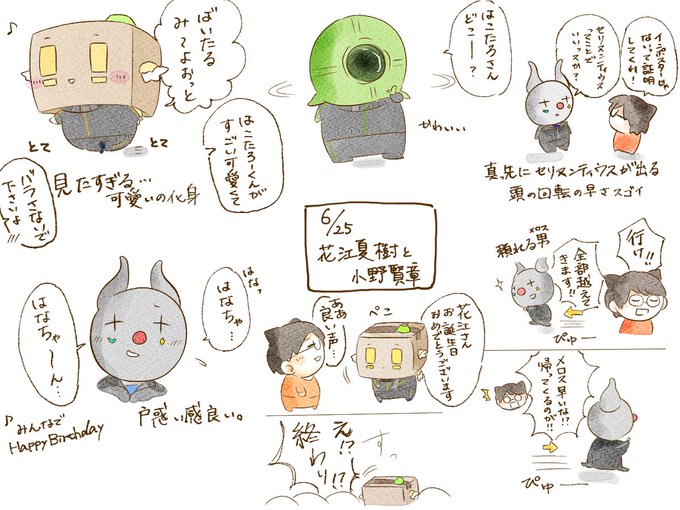 ばいたる
みてよおっと
とて
とて
はこたろーくんが
すごい可愛くて
バラさないで
下さいよ
見たすぎる…
可愛いの化身
はこたろさん
どこー？
かわいい
インポスターじゃ
ないって証明
してくれ！
セリヌンティウス
ってことで
いいッスか？
真っ先にセリヌンティウスが出る
頭の回転の早さスゴイ
6/25
花江夏樹と
小野賢章
はなっ
はなちゃ…
はなちゃ〜ん…
戸惑い感良い。
♪みんなで
Happy Birthday
ああ
良い声…
ぺこ
花江さん
お誕生日
おめでとうございます
え!?
終わり!?
すっ
行け!!
メロス
頼れる男
全部越えて
きます!!
ぴゅー
メロス早いな!?
帰ってくるのが!!
ぴゅー